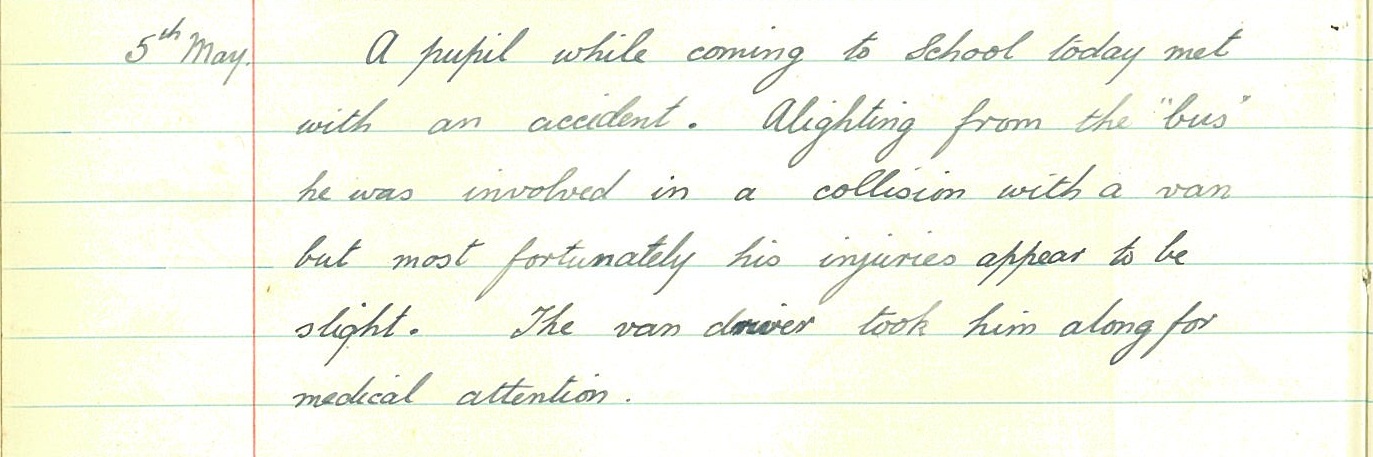 5th May. A pupil while coming to School today met
with an accident. Alighting from the "bus"
he was involved in a collision with a van
but most fortunately his injuries appear to be
slight. The van driver took him along for
medical attention.